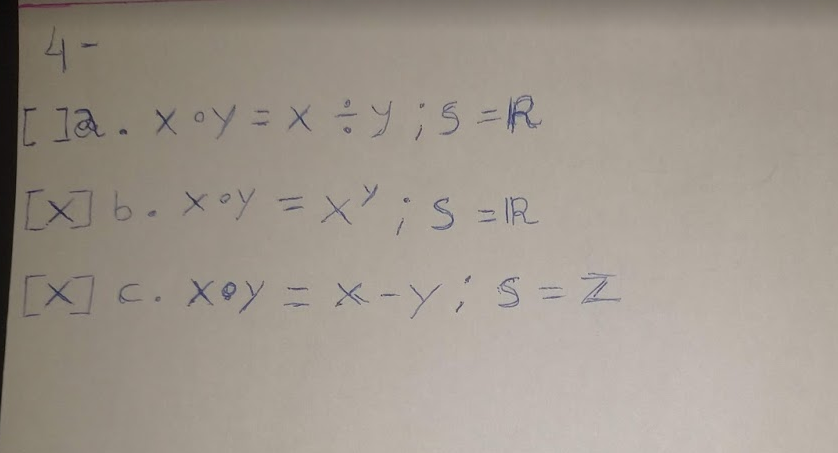 4-
[ ] a. x∘y = x ÷ y ; S = ℝ
[X] b. x∘y = xʸ ; S = ℝ
[X] c. x∘y = x - y ; S = ℤ